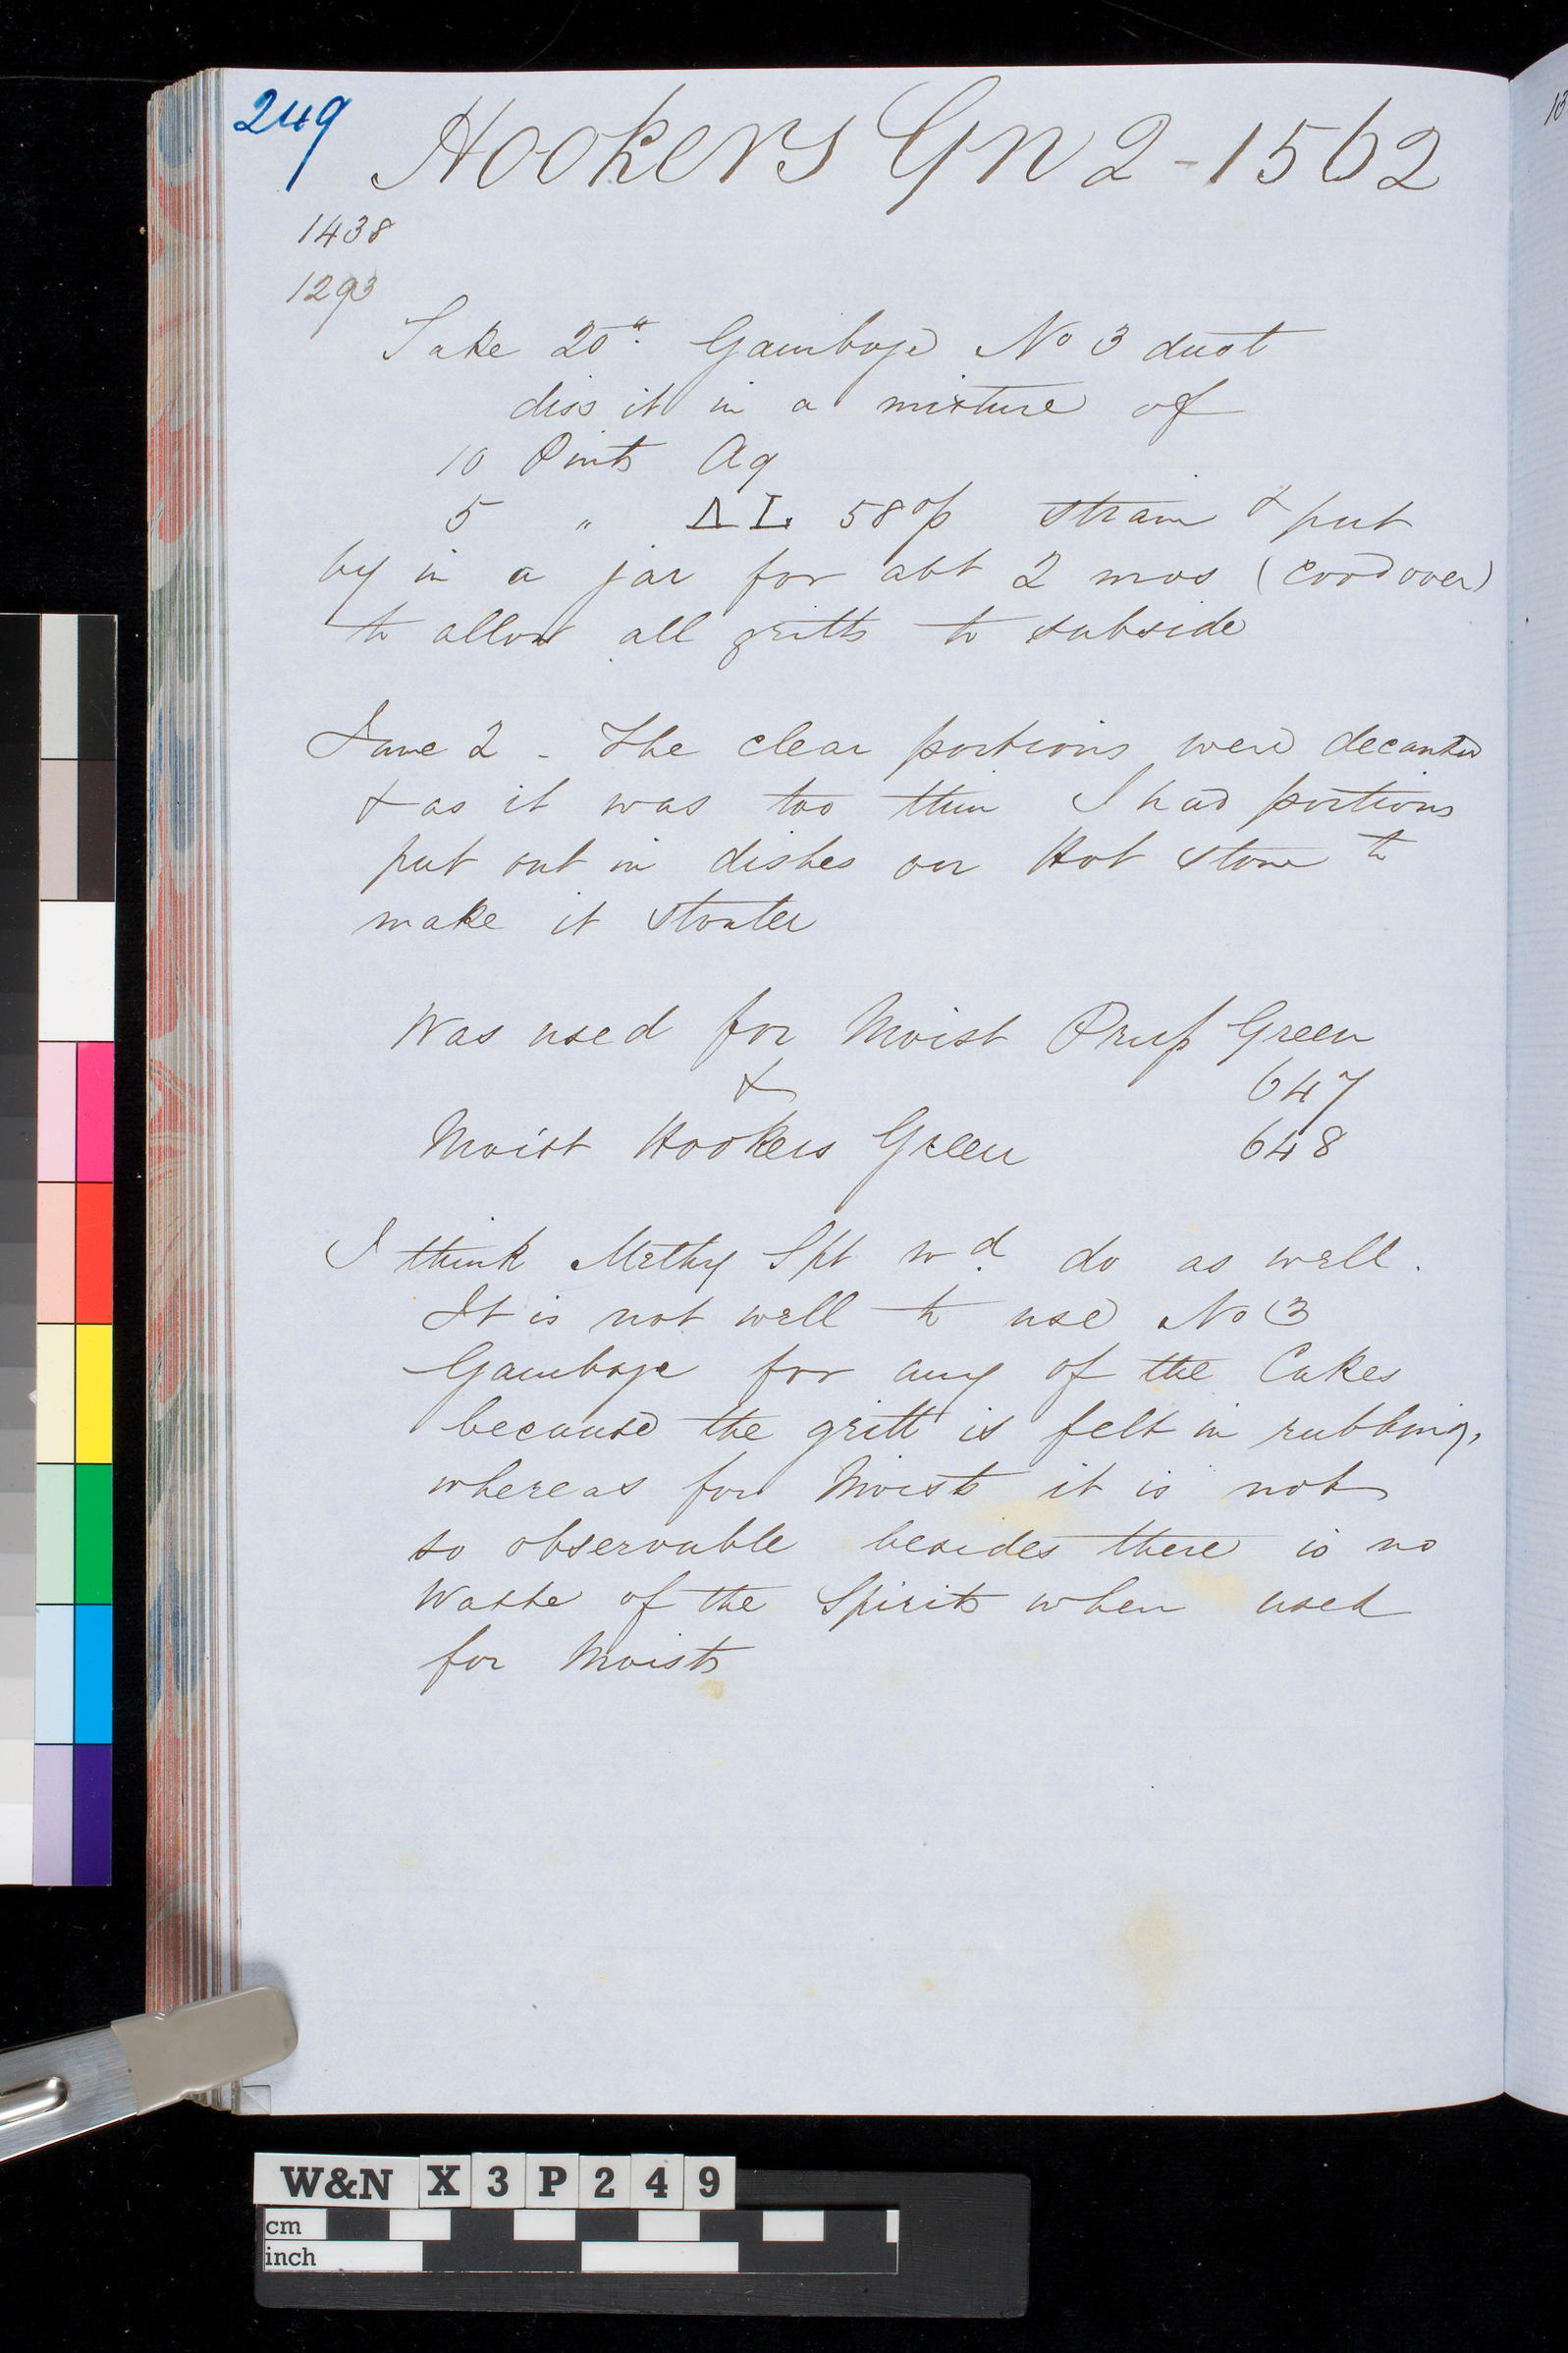 249
Hookers Gn 2 - 1562
1438
1293
Take 20" Gamboge No 3 dust
diss it in a mixture of
10 Pints Aq
5 " Δ L. 58 op strain & put
by in a jar for abt 2 mos (cord over)
to allow all gritts to subside
June 2 - The clear portions were decanted
& as it was too thin I had portions
put out in dishes on Hot Stone to
make it stouter
Was used for Moist Prus Green
& 647
Moist Hookers Green 648
I think Methy Spt wd. do as well.
It is not well to use No 3
Gamboge for any of the Cakes
because the gritt is felt in rubbing,
whereas for Moists it is not
so observable besides there is no
Waste of the Spirits when used
for Moists
W&N X 3 P 2 4 9
cm
inch